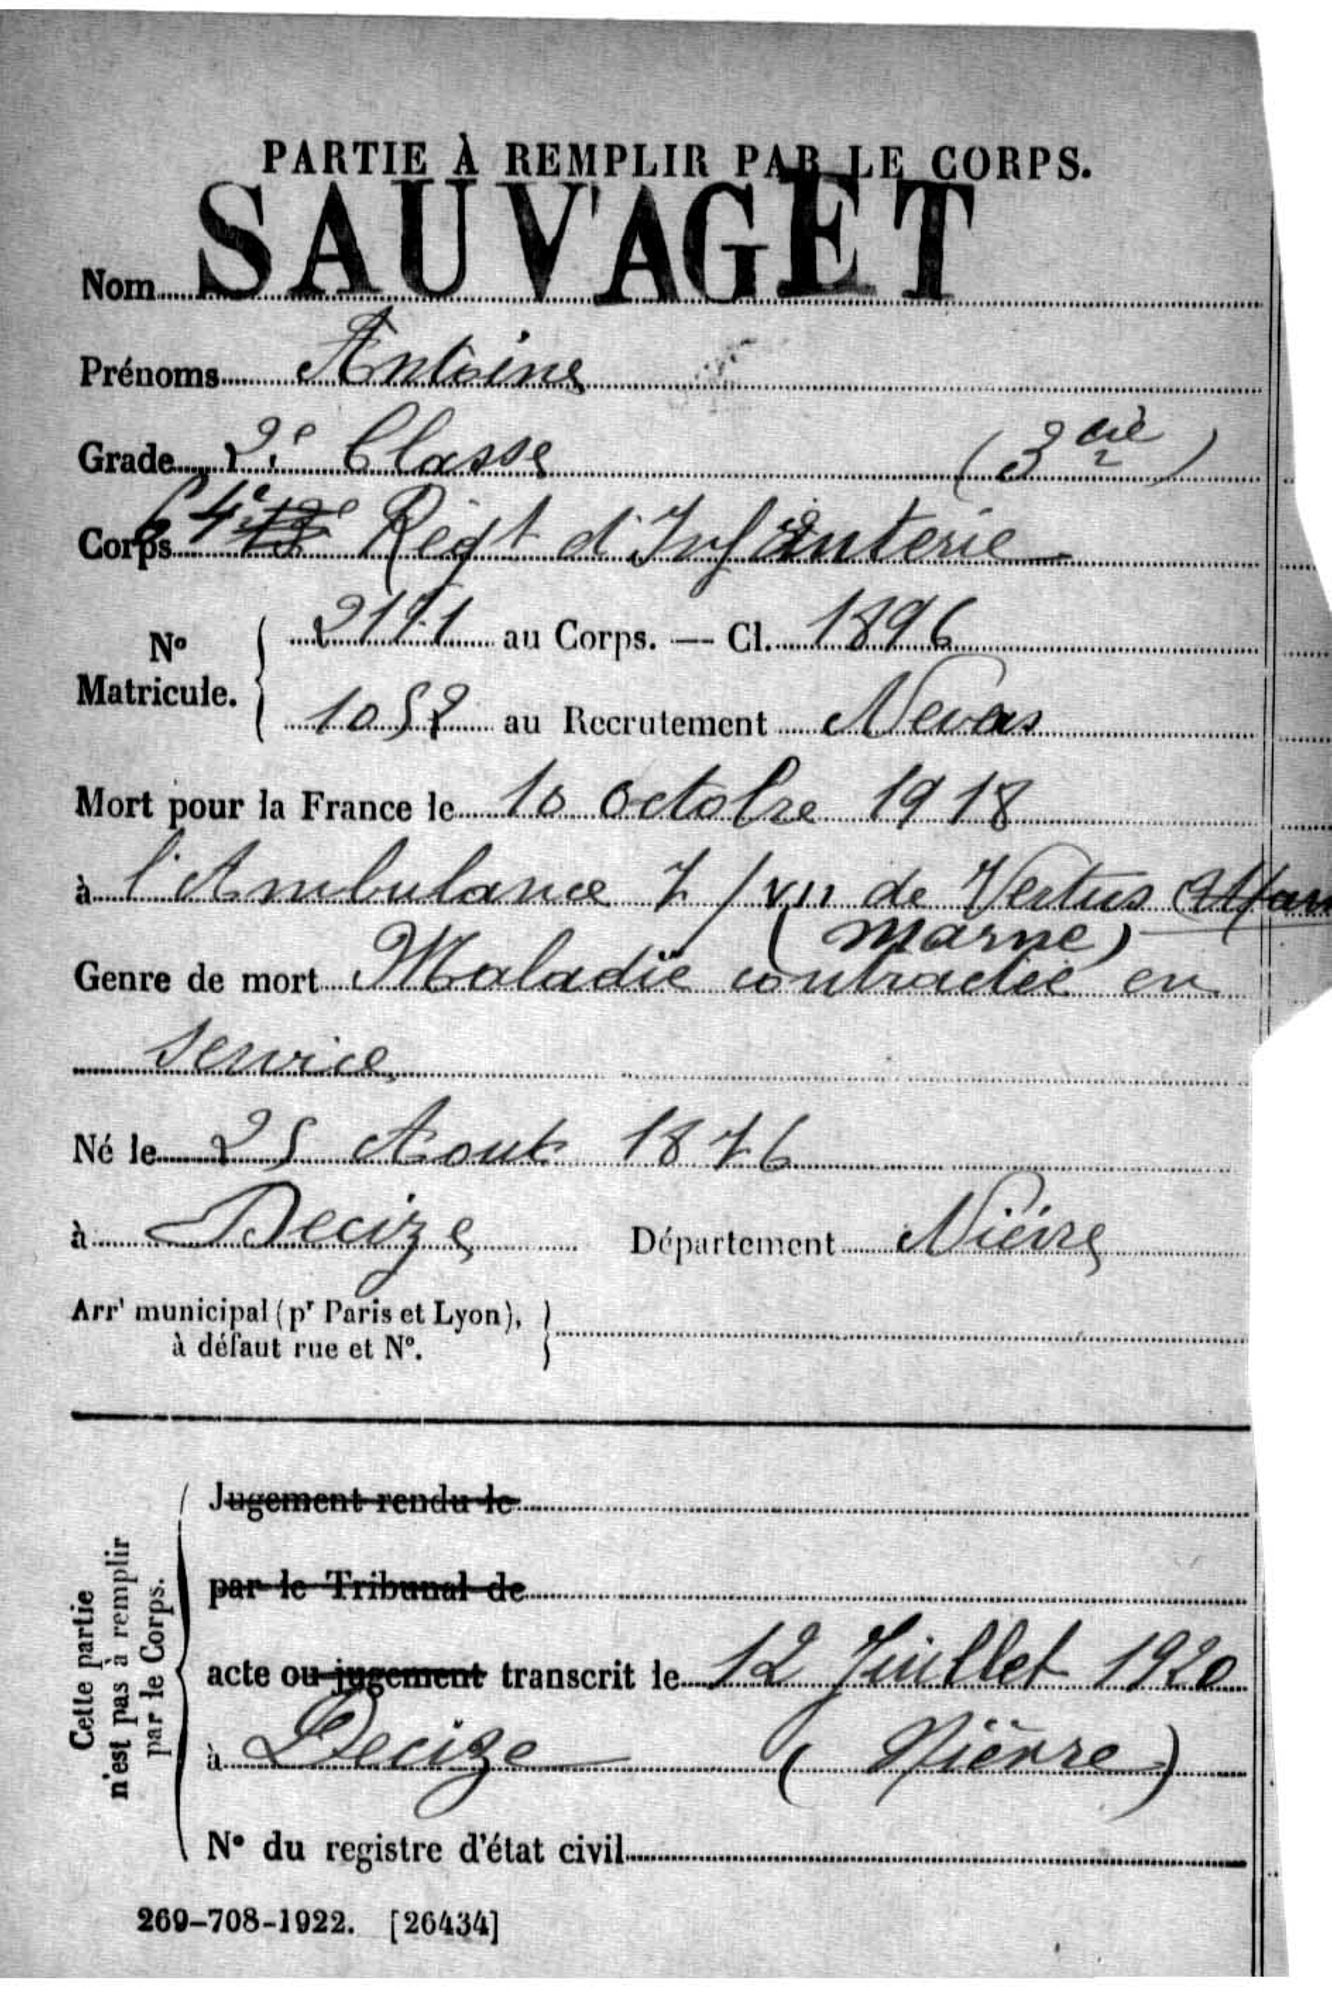 PARTIE À REMPLIR PAR LE CORPS.
Nom SAUVAGET
Prénoms Antoine
Grade 2e Classe (3e cie)
Corps 64e Régt d'Infanterie
No Matricule. au Corps. — Cl. 1896
1052 au Recrutement Nevers
Mort pour la France le 10 Octobre 1918
à l'Ambulance 7/VII de Vertus
(Marne)
Genre de mort Maladie contractée en
service
Né le 25 Aout 1876
à Decize Département Nièvre
Arrt municipal (pr Paris et Lyon),
à défaut rue et No.
Cette partie
n'est pas à remplir
par le Corps.
Jugement rendu le
par le Tribunal de
acte ou jugement transcrit le 12 Juillet 1920
à Decize (Nièvre)
No du registre d'état civil
269-708-1922. [26434]